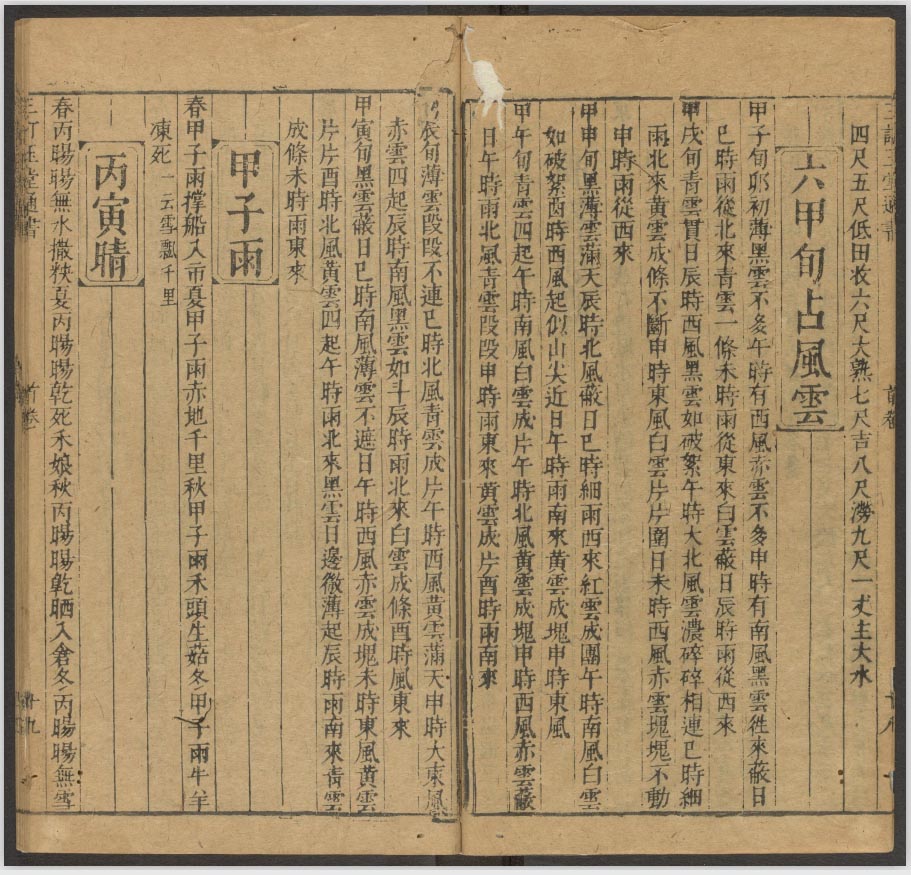 四尺五尺低田收六尺大熟七尺吉八尺澇九尺一丈主大水
六甲旬占風雲
甲子旬耶初薄黑雲不多午時有西風赤雲不多申時有南風黑雲徃來蔽日
巳時雨從北來青雲一條未時雨從東來白雲蔽日辰時雨從西來
甲戌旬青雲貫日辰時西風黑雲如破絮午時大北風雲濃碎碎相連巳時細
雨北來黃雲成條不斷申時東風白雲片片圍日未時西風赤雲塊塊不動
申時雨從西來
甲申旬黑薄雲滿天辰時北風蔽日巳時細雨西來紅雲成團午時南風白雲
如破絮酉時西風起似山尖近日午時雨南來黃雲成塊申時東風
甲午旬青雲四起午時南風白雲成片午時北風黃雲成塊申時西風赤雲蔽
日午時雨北風青雲段段申時雨東來黃雲成片酉時雨南來
辰旬薄雲段段不連巳時北風青雲成片午時西風黃雲滿天申時大東風
赤雲四起辰時南風黑雲如斗辰時雨北來白雲成條酉時風東來
甲寅旬黑雲蔽日巳時南風薄雲不遮日午時西風赤雲成塊未時東風黃雲
片片酉時北風黃雲四起午時雨北來黑雲日邊微薄起辰時雨南來青雲
成條未時雨東來
甲子雨
春甲子雨撑船入市夏甲子雨赤地千里秋甲子雨禾頭生菇冬甲子雨牛羊
凍死一云雪飄千里
丙寅晴
春丙暘暘無水撒秧夏丙暘暘乾死禾娘秋丙暘暘乾晒入倉冬丙暘暘無雪
首卷